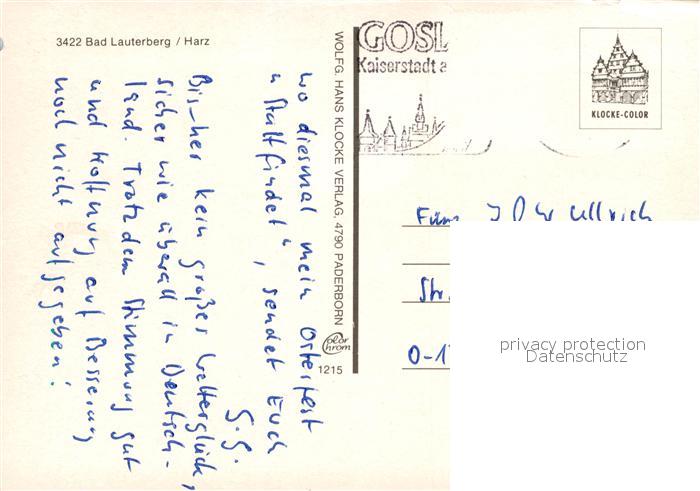 3422 Bad Lauterberg / Harz
wo diesmal mein Osterfest
"stattfindet", sendet Euch
G.G.
Bisher kein großes Wetterglück,
sicher wie überall in Deutsch-
land Trotzdem Stimmung gut
und Hoffnung auf Besserung
noch nicht aufgegeben!
WOLFG. HANS KLOCKE VERLAG, 4790 PADERBORN
color chrom
1215
GOSL
Kaiserstadt a
KLOCKE-COLOR
Ullrich
Str.
O-1
privacy protection
Datenschutz